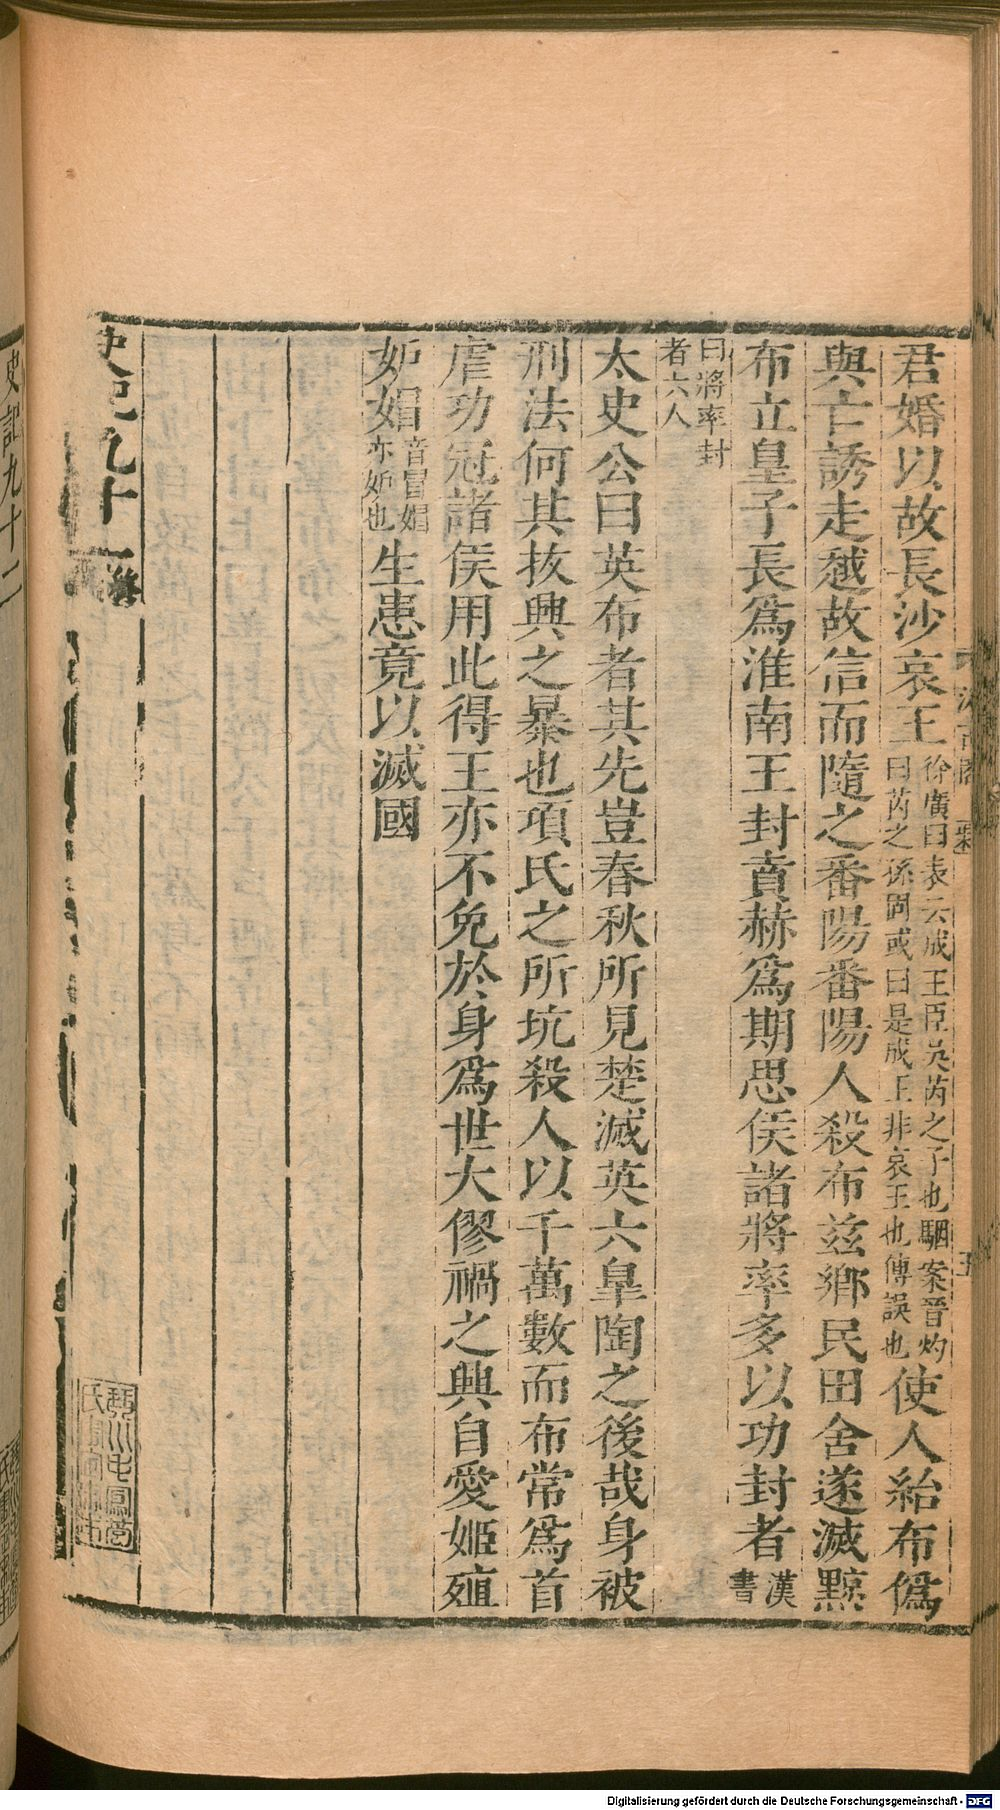 君婚以故長沙哀王徐廣曰表云成王臣吳芮之子也駰案晉灼曰芮之孫固或曰是成王非哀王也傳誤也使人紿布僞
與亡誘走越故信而隨之番陽番陽人殺布兹鄉民田舍遂滅黥
布立皇子長爲淮南王封賁赫爲期思侯諸將率多以功封者漢書
曰將率封者六人
太史公曰英布者其先豈春秋所見楚滅英六皐陶之後哉身被
刑法何其拔興之暴也項氏之所坑殺人以千萬數而布常爲首
虐功冠諸侯用此得王亦不免於身爲世大僇禍之興自愛姬殖
妒媢音冒媢亦妒也生患竟以滅國
史記九十一
史記九十二
五
Digitalisierung gefördert durch die Deutsche Forschungsgemeinschaft - DFG